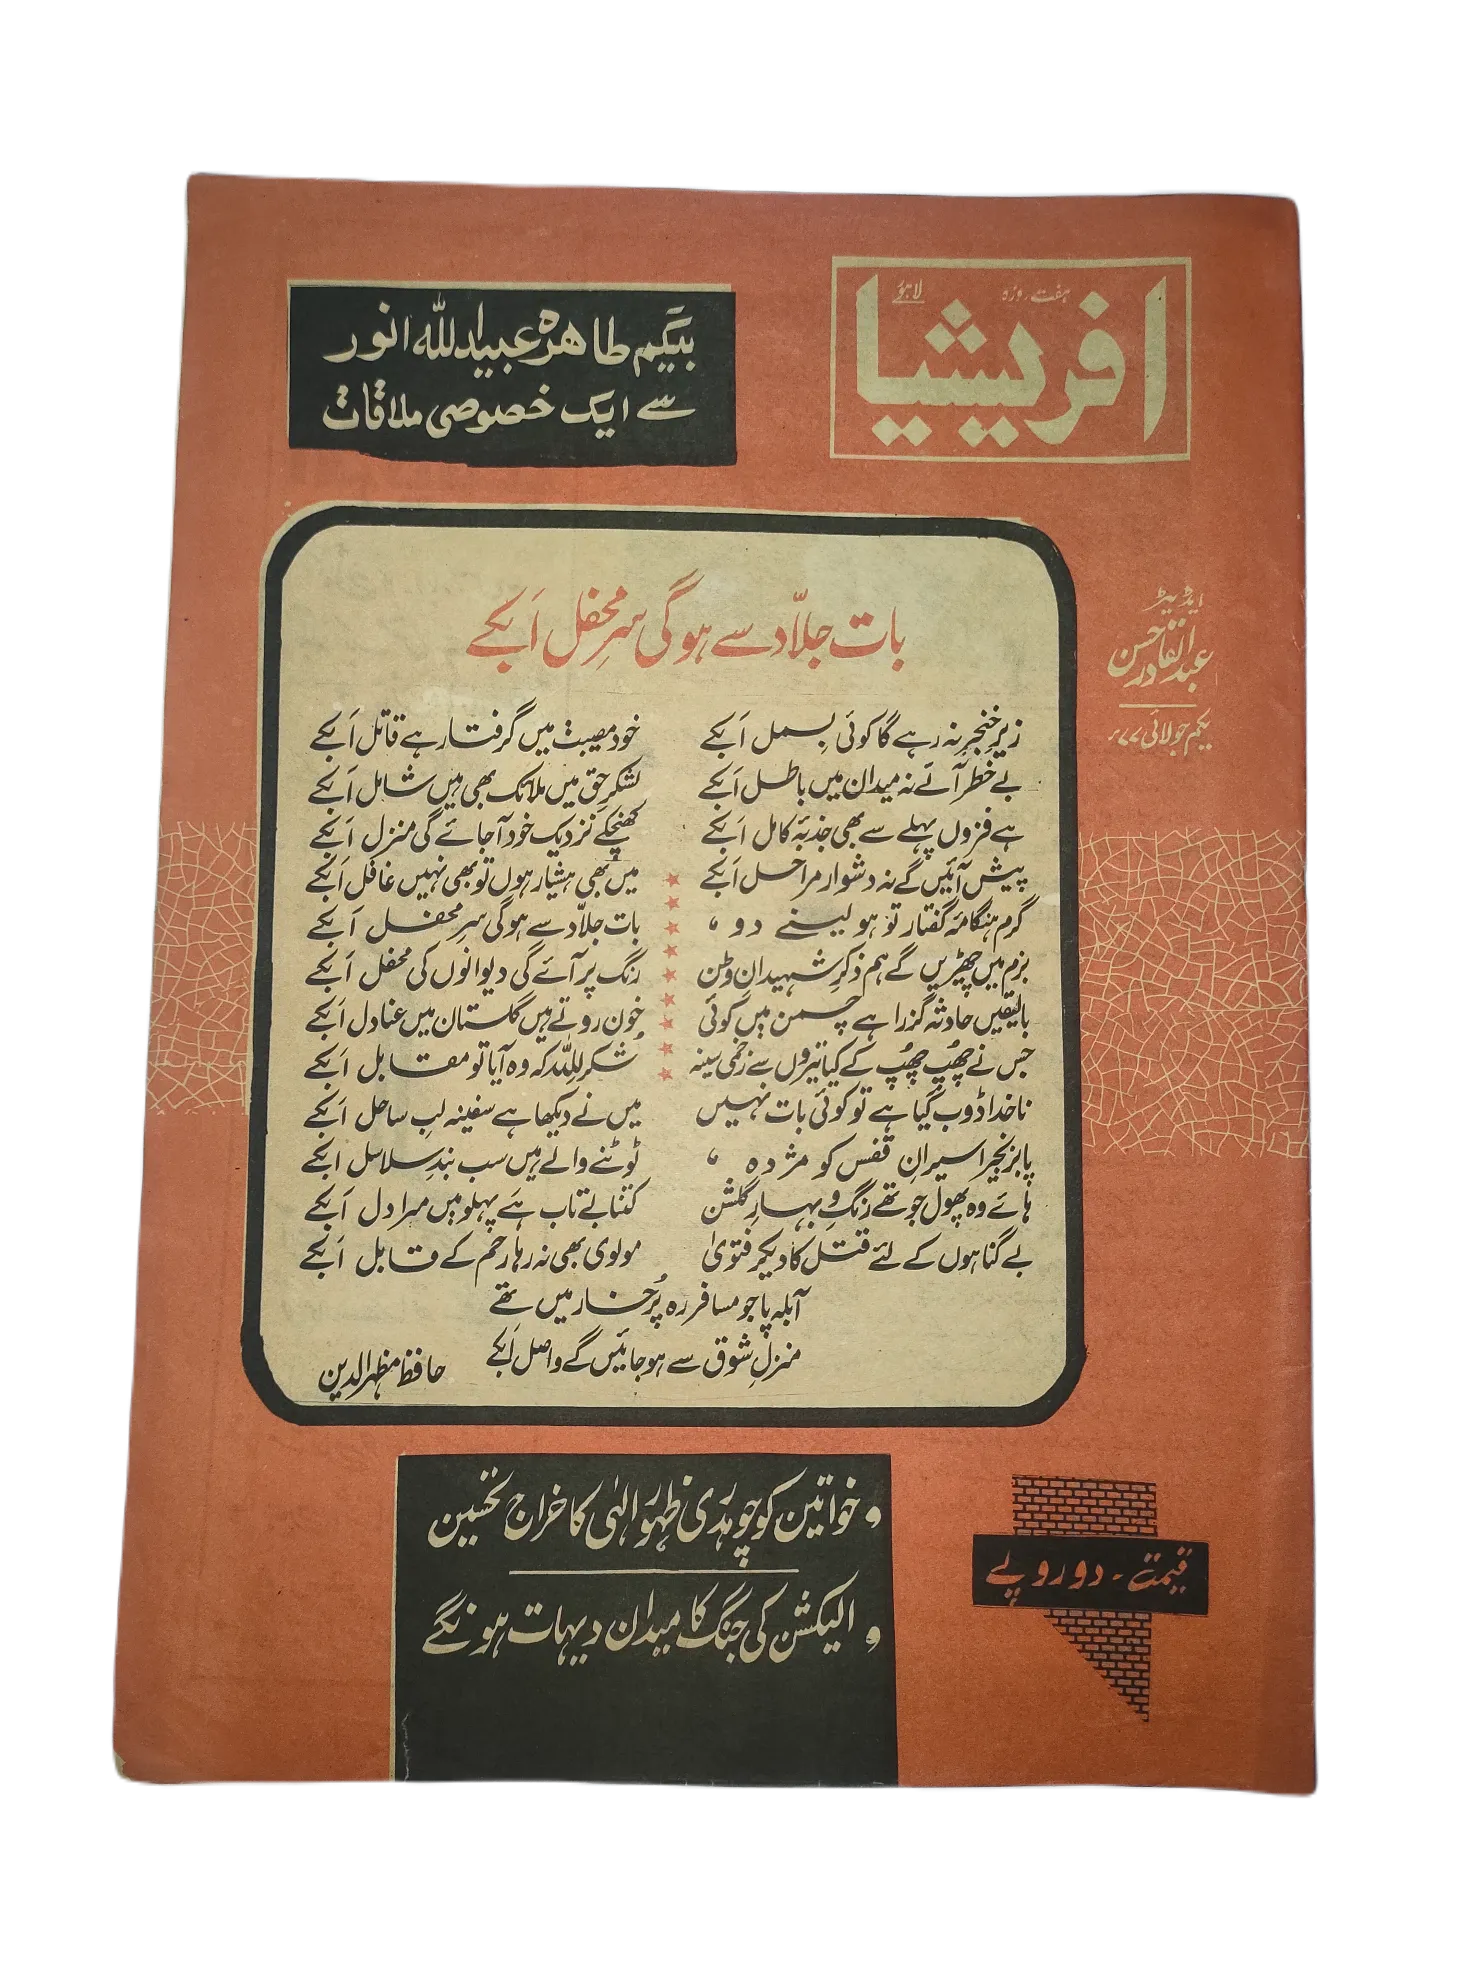 ہفت روزہ لاہور
افریشیا
بیگم طاہرہ عبیداللہ انور
سے ایک خصوصی ملاقات
ایڈیٹر
عبدالقادر حسن
یکم جولائی ۷۷ء
بات جلّاد سے ہوگی سرِ محفل اَبکے
زیرِ خنجر نہ رہے گا کوئی بسمل اَبکے خود مصیبت میں گرفتار ہے قاتل اَبکے
بے خطر آئے نہ میدان میں باطل اَبکے لشکرِ حق میں ملائک بھی ہیں شامل اَبکے
ہے فزوں پہلے سے بھی جذبۂ کامل اَبکے کھنچکے نزدیک خود آجائے گی منزل اَبکے
پیش آئیں گے نہ دشوار مراحل اَبکے میں بھی ہشیار ہوں تو بھی نہیں غافل اَبکے
گرم ہنگامۂ گفتار تو ہو لینے دو، بات جلّاد سے ہوگی سرِ محفل اَبکے
بزم میں چھڑیں گے ہم ذکرِ شہیدانِ وطن رنگ پر آئے گی دیوانوں کی محفل اَبکے
بالیقیں حادثہ گزرا ہے چمن میں کوئی خون روتے ہیں گلستان میں عنادل اَبکے
جس نے چھُپ چھُپ کے کیا تیروں سے زخمی سینہ شُکر لِلّٰہ کہ وہ آیا تو مقابل اَبکے
ناخدا ڈوب گیا ہے تو کوئی بات نہیں میں نے دیکھا ہے سفینہ لبِ ساحل اَبکے
پابزنجیر اسیرانِ قفس کو مژدہ، ٹوٹنے والے ہیں سب بندِ سلاسل اَبکے
ہائے وہ پھول جو تھے رنگ و بہارِ گلشن کتنا بے تاب ہے پہلو میں مرا دل اَبکے
بے گناہوں کے لئے قتل کا دیکر فتویٰ مولوی بھی نہ رہا رحم کے قابل اَبکے
آبلہ پا جو مسافر رہ پُرخار میں تھے
منزلِ شوق سے ہوجائیں گے واصل اَبکے
حافظ مظہرالدین
و خواتین کو چوہدری ظہور الٰہی کا خراج تحسین
و الیکشن کی جنگ کا میدان دیہات ہونگے
قیمت - دو روپے